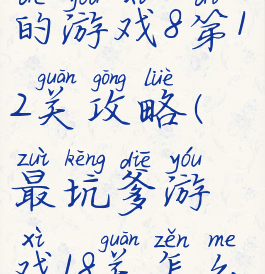 的游戏8第1
guān gōng lüè
2关攻略(
zuì kēng diē yóu
最坑爹游
xì guān zěn me
戏18关怎么